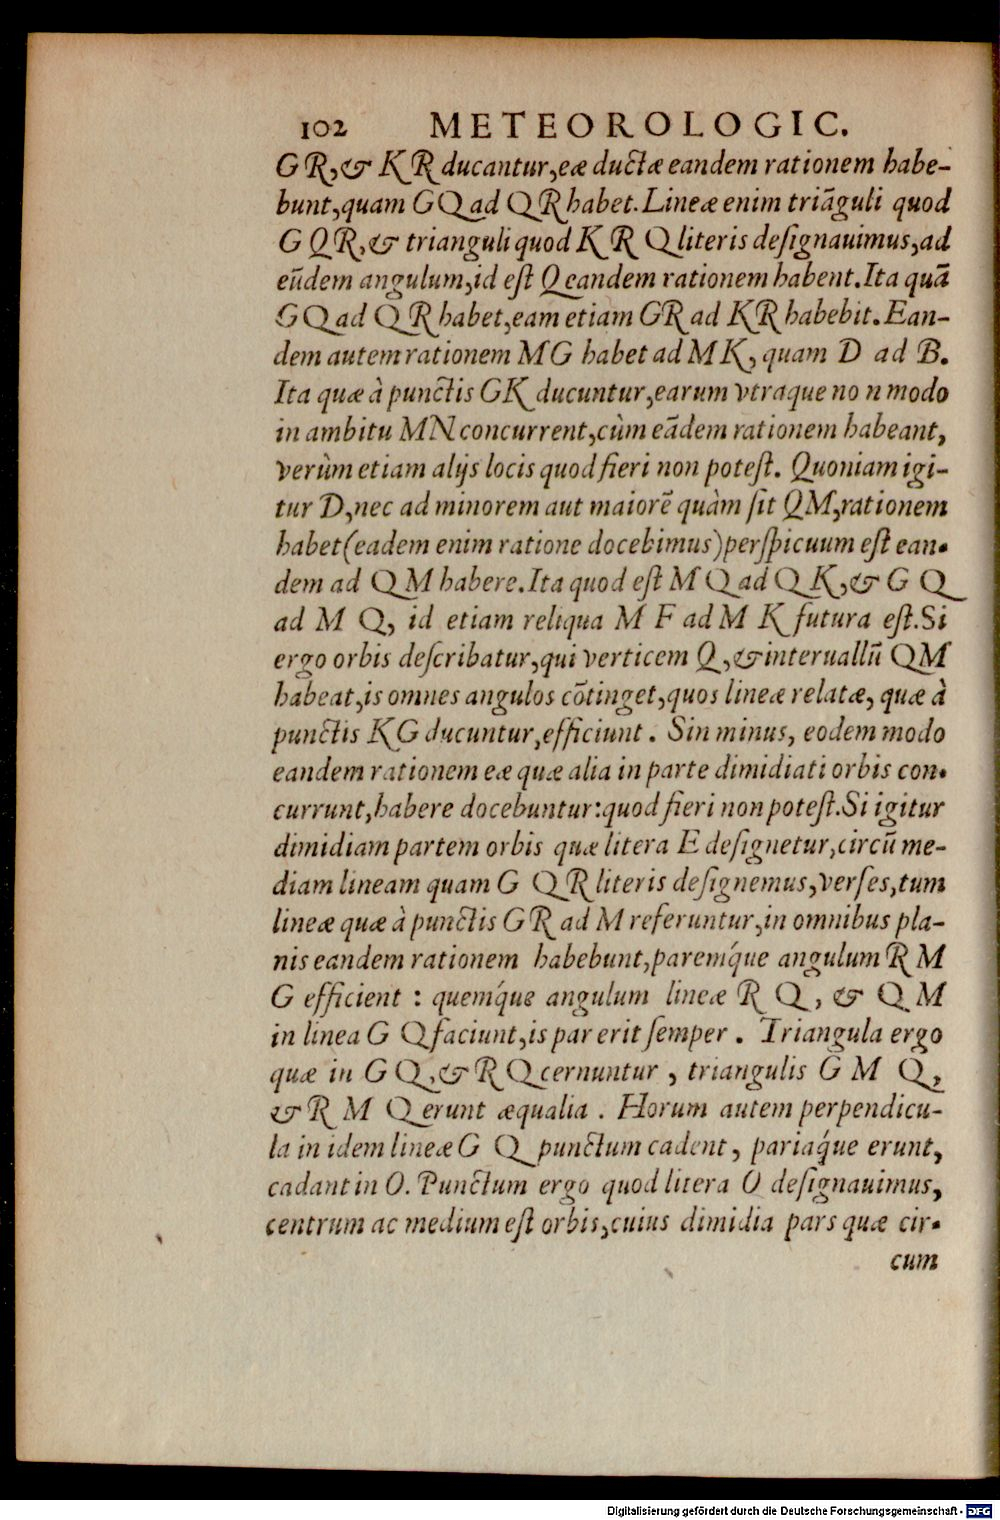 102 METEOROLOGIC.
G R, & K R ducantur, eæ ductæ eandem rationem habe-
bunt, quam G Q ad Q R habet. Lineæ enim triãguli quod
G Q R, & trianguli quod K R Q literis deſignauimus, ad
eũdem angulum, id eſt Q eandem rationem habent. Ita quã
G Q ad Q R habet, eam etiam GR ad KR habebit. Ean-
dem autem rationem MG habet ad MK, quam D ad B.
Ita quæ à punctis GK ducuntur, earum vtraque no n modo
in ambitu MN concurrent, cùm eãdem rationem habeant,
verùm etiam alijs locis quod fieri non poteſt. Quoniam igi-
tur D, nec ad minorem aut maiorẽ quàm ſit QM, rationem
habet (eadem enim ratione docebimus) perſpicuum eſt ean-
dem ad QM habere. Ita quod eſt M Q ad Q K, & G Q
ad M Q, id etiam reliqua M F ad M K futura eſt. Si
ergo orbis deſcribatur, qui verticem Q, & interuallũ QM
habeat, is omnes angulos cõtinget, quos lineæ relatæ, quæ à
punctis KG ducuntur, efficiunt. Sin minus, eodem modo
eandem rationem eæ quæ alia in parte dimidiati orbis con-
currunt, habere docebuntur: quod fieri non poteſt. Si igitur
dimidiam partem orbis quæ litera E deſignetur, circũ me-
diam lineam quam G Q R literis deſignemus, verſes, tum
lineæ quæ à punctis GR ad M referuntur, in omnibus pla-
nis eandem rationem habebunt, paremq́ue angulum R M
G efficient : quemq́ue angulum lineæ R Q, & Q M
in linea G Q faciunt, is par erit ſemper. Triangula ergo
quæ in G Q, & R Q cernuntur, triangulis G M Q,
& R M Q erunt æqualia. Horum autem perpendicu-
la in idem lineæ G Q punctum cadent, pariaq́ue erunt,
cadant in O. Punctum ergo quod litera O deſignauimus,
centrum ac medium eſt orbis, cuius dimidia pars quæ cir-
cum
Digitalisierung gefördert durch die Deutsche Forschungsgemeinschaft - DFG